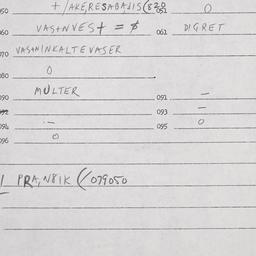 050 + /AKE,RESABAJIS(820 051 0
060 VASTNVEST = $ 061 DIGRET
070 VASTNINKALTEVASER
080 0
090 MULTER 091 —
092 093 —
094 .- 095 0
096 0
1 PRA,N8IK (/079050